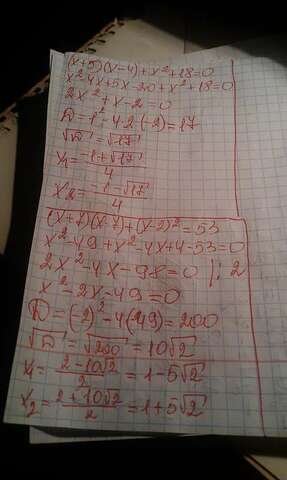 (x+5)(x-4)+x²+18=0
x²-4x+5x-20+x²+18=0
2x²+x-2=0
D=1²-4·2·(-2)=17
√D=√17
x₁=(-1+√17)/4
x₂=(-1-√17)/4
(x+7)(x-7)+(x-2)²=53
x²-49+x²-4x+4-53=0
2x²-4x-98=0 |:2
x²-2x-49=0
D=(-2)²-4(-49)=200
√D=√200=10√2
x₁=(2-10√2)/2=1-5√2
x₂=(2+10√2)/2=1+5√2